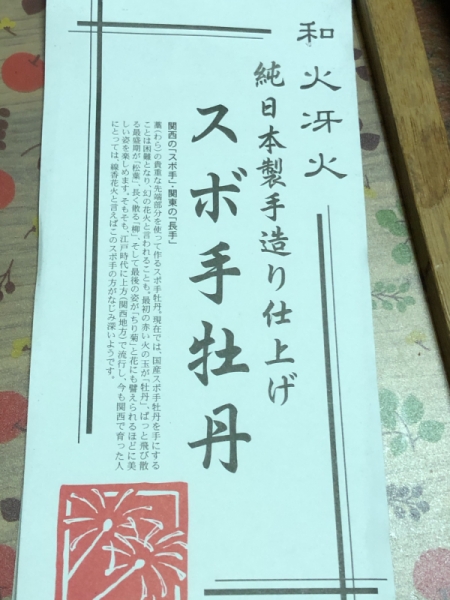 和火冴火
純日本製手造り仕上げ
スボ手牡丹
関西の「スボ手」・関東の「長手」
藁(わら)の貴重な先端部分を使って作るスボ手牡丹。現在では、国産スボ手牡丹を手にする
ことは困難となり、幻の花火と言われることも。最初の赤い火の玉が「牡丹」、ぱっと飛び散
る最盛期が「松葉」、長く散る「柳」、そして最後の姿が「ちり菊」と花にも譬えられるほどに美
しい姿を楽しめます。そもそも、江戸時代に上方(関西地方)で流行し、今も関西で育った人
にとっては、線香花火と言えばこのスボ手の方がなじみ深いようです。